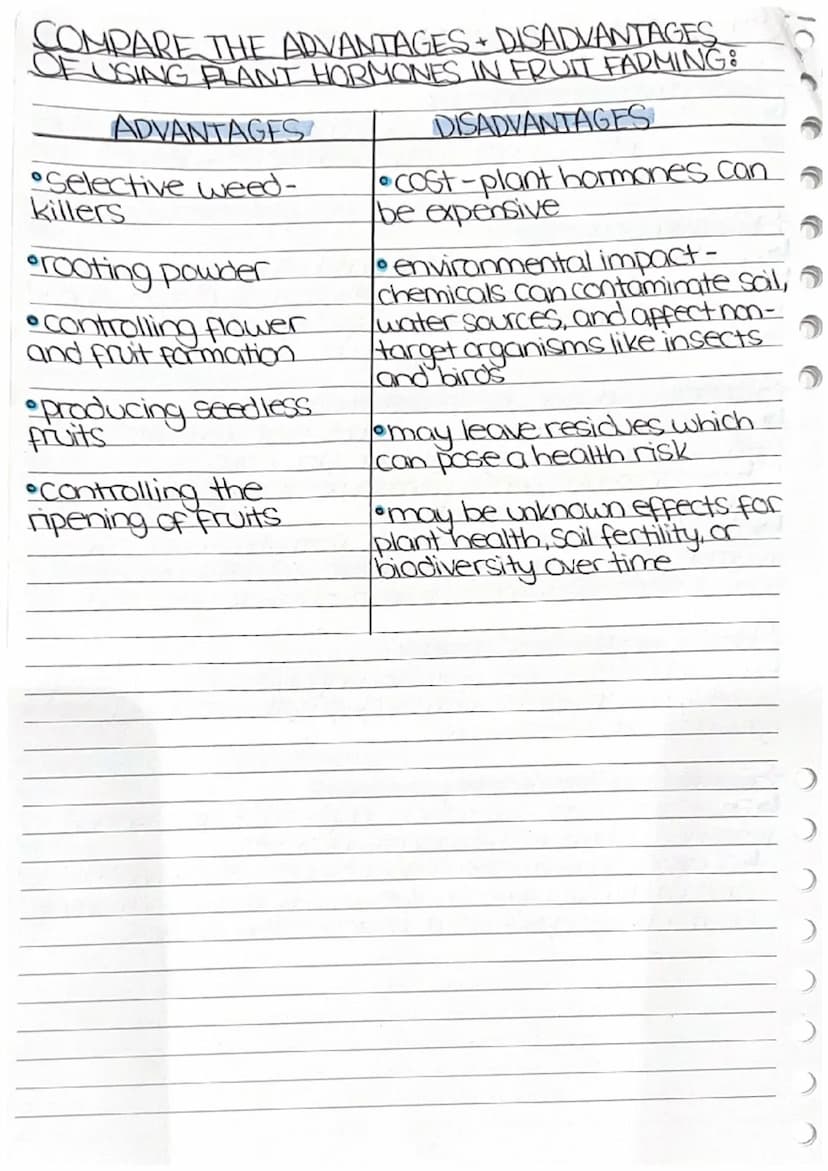 COMPARE THE ADVANTAGES + DISADVANTAGES
OF USING PLANT HORMONES IN FRUIT FARMING:
ADVANTAGES
•selective weed-
killers
•rooting powder
•controlling flower
and fruit formation
•producing seedless
fruits
•controlling the
ripening of fruits
DISADVANTAGES
•cost-plant hormones can
be expensive
•environmental impact-
chemicals can contaminate soil,
water sources, and affect non-
target organisms like insects
and birds
•may leave residues which
can pose a health risk
•may be unknown effects for
plant health, soil fertility, or
biodiversity over time